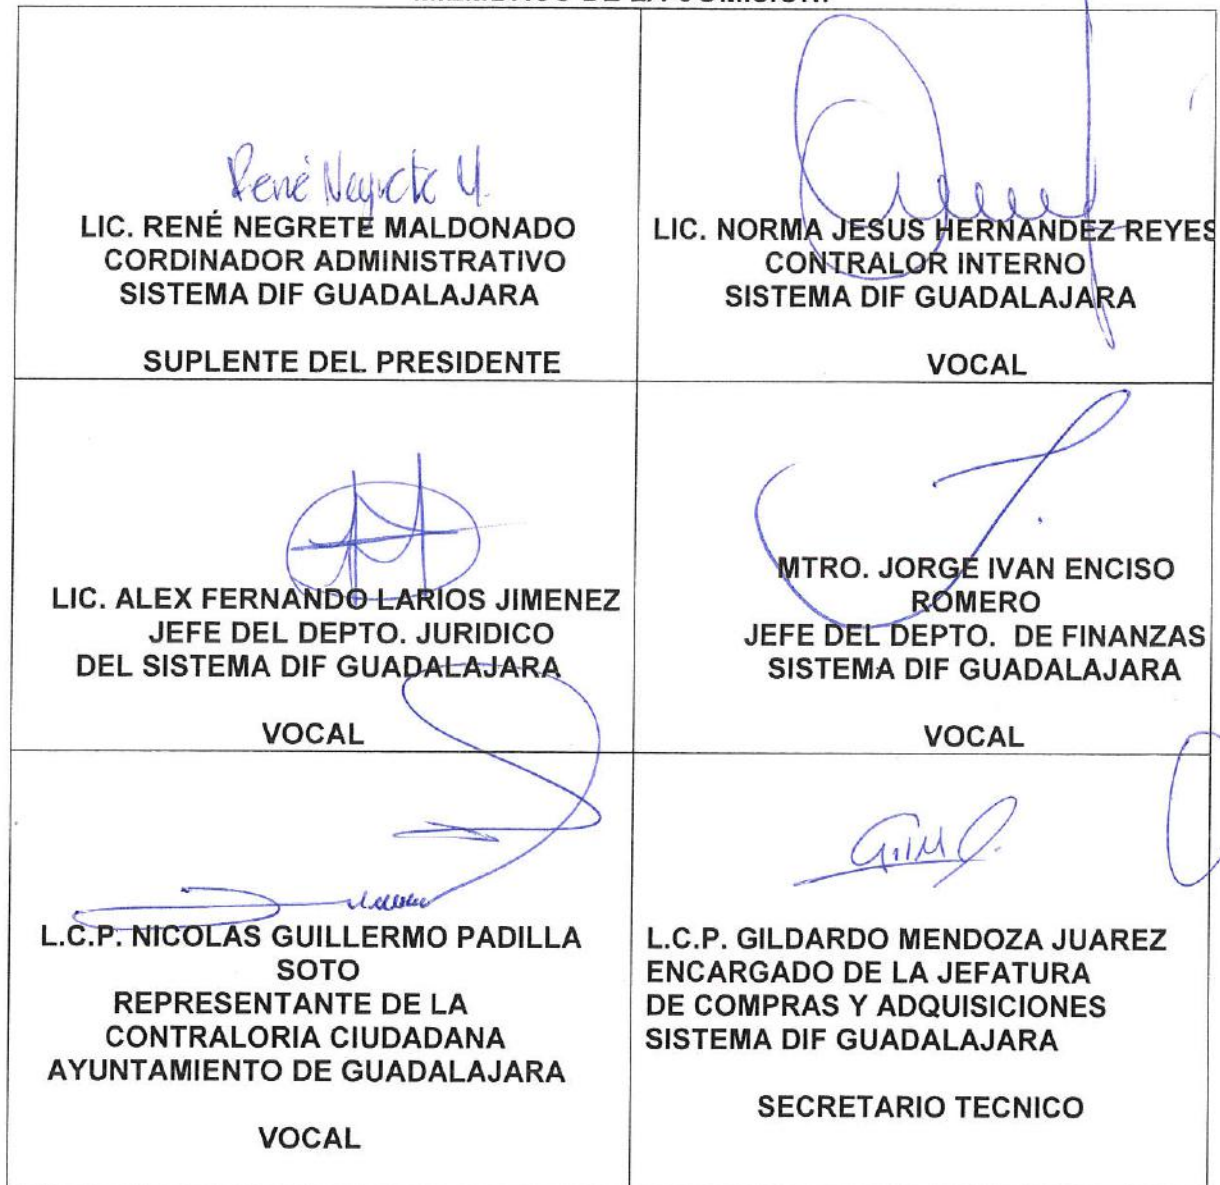 René Negrete M.
LIC. RENÉ NEGRETE MALDONADO
CORDINADOR ADMINISTRATIVO
SISTEMA DIF GUADALAJARA
SUPLENTE DEL PRESIDENTE
LIC. NORMA JESUS HERNANDEZ REYES
CONTRALOR INTERNO
SISTEMA DIF GUADALAJARA
VOCAL
LIC. ALEX FERNANDO LARIOS JIMENEZ
JEFE DEL DEPTO. JURIDICO
DEL SISTEMA DIF GUADALAJARA
VOCAL
MTRO. JORGE IVAN ENCISO
ROMERO
JEFE DEL DEPTO. DE FINANZAS
SISTEMA DIF GUADALAJARA
VOCAL
L.C.P. NICOLAS GUILLERMO PADILLA
SOTO
REPRESENTANTE DE LA
CONTRALORIA CIUDADANA
AYUNTAMIENTO DE GUADALAJARA
VOCAL
L.C.P. GILDARDO MENDOZA JUAREZ
ENCARGADO DE LA JEFATURA
DE COMPRAS Y ADQUISICIONES
SISTEMA DIF GUADALAJARA
SECRETARIO TECNICO